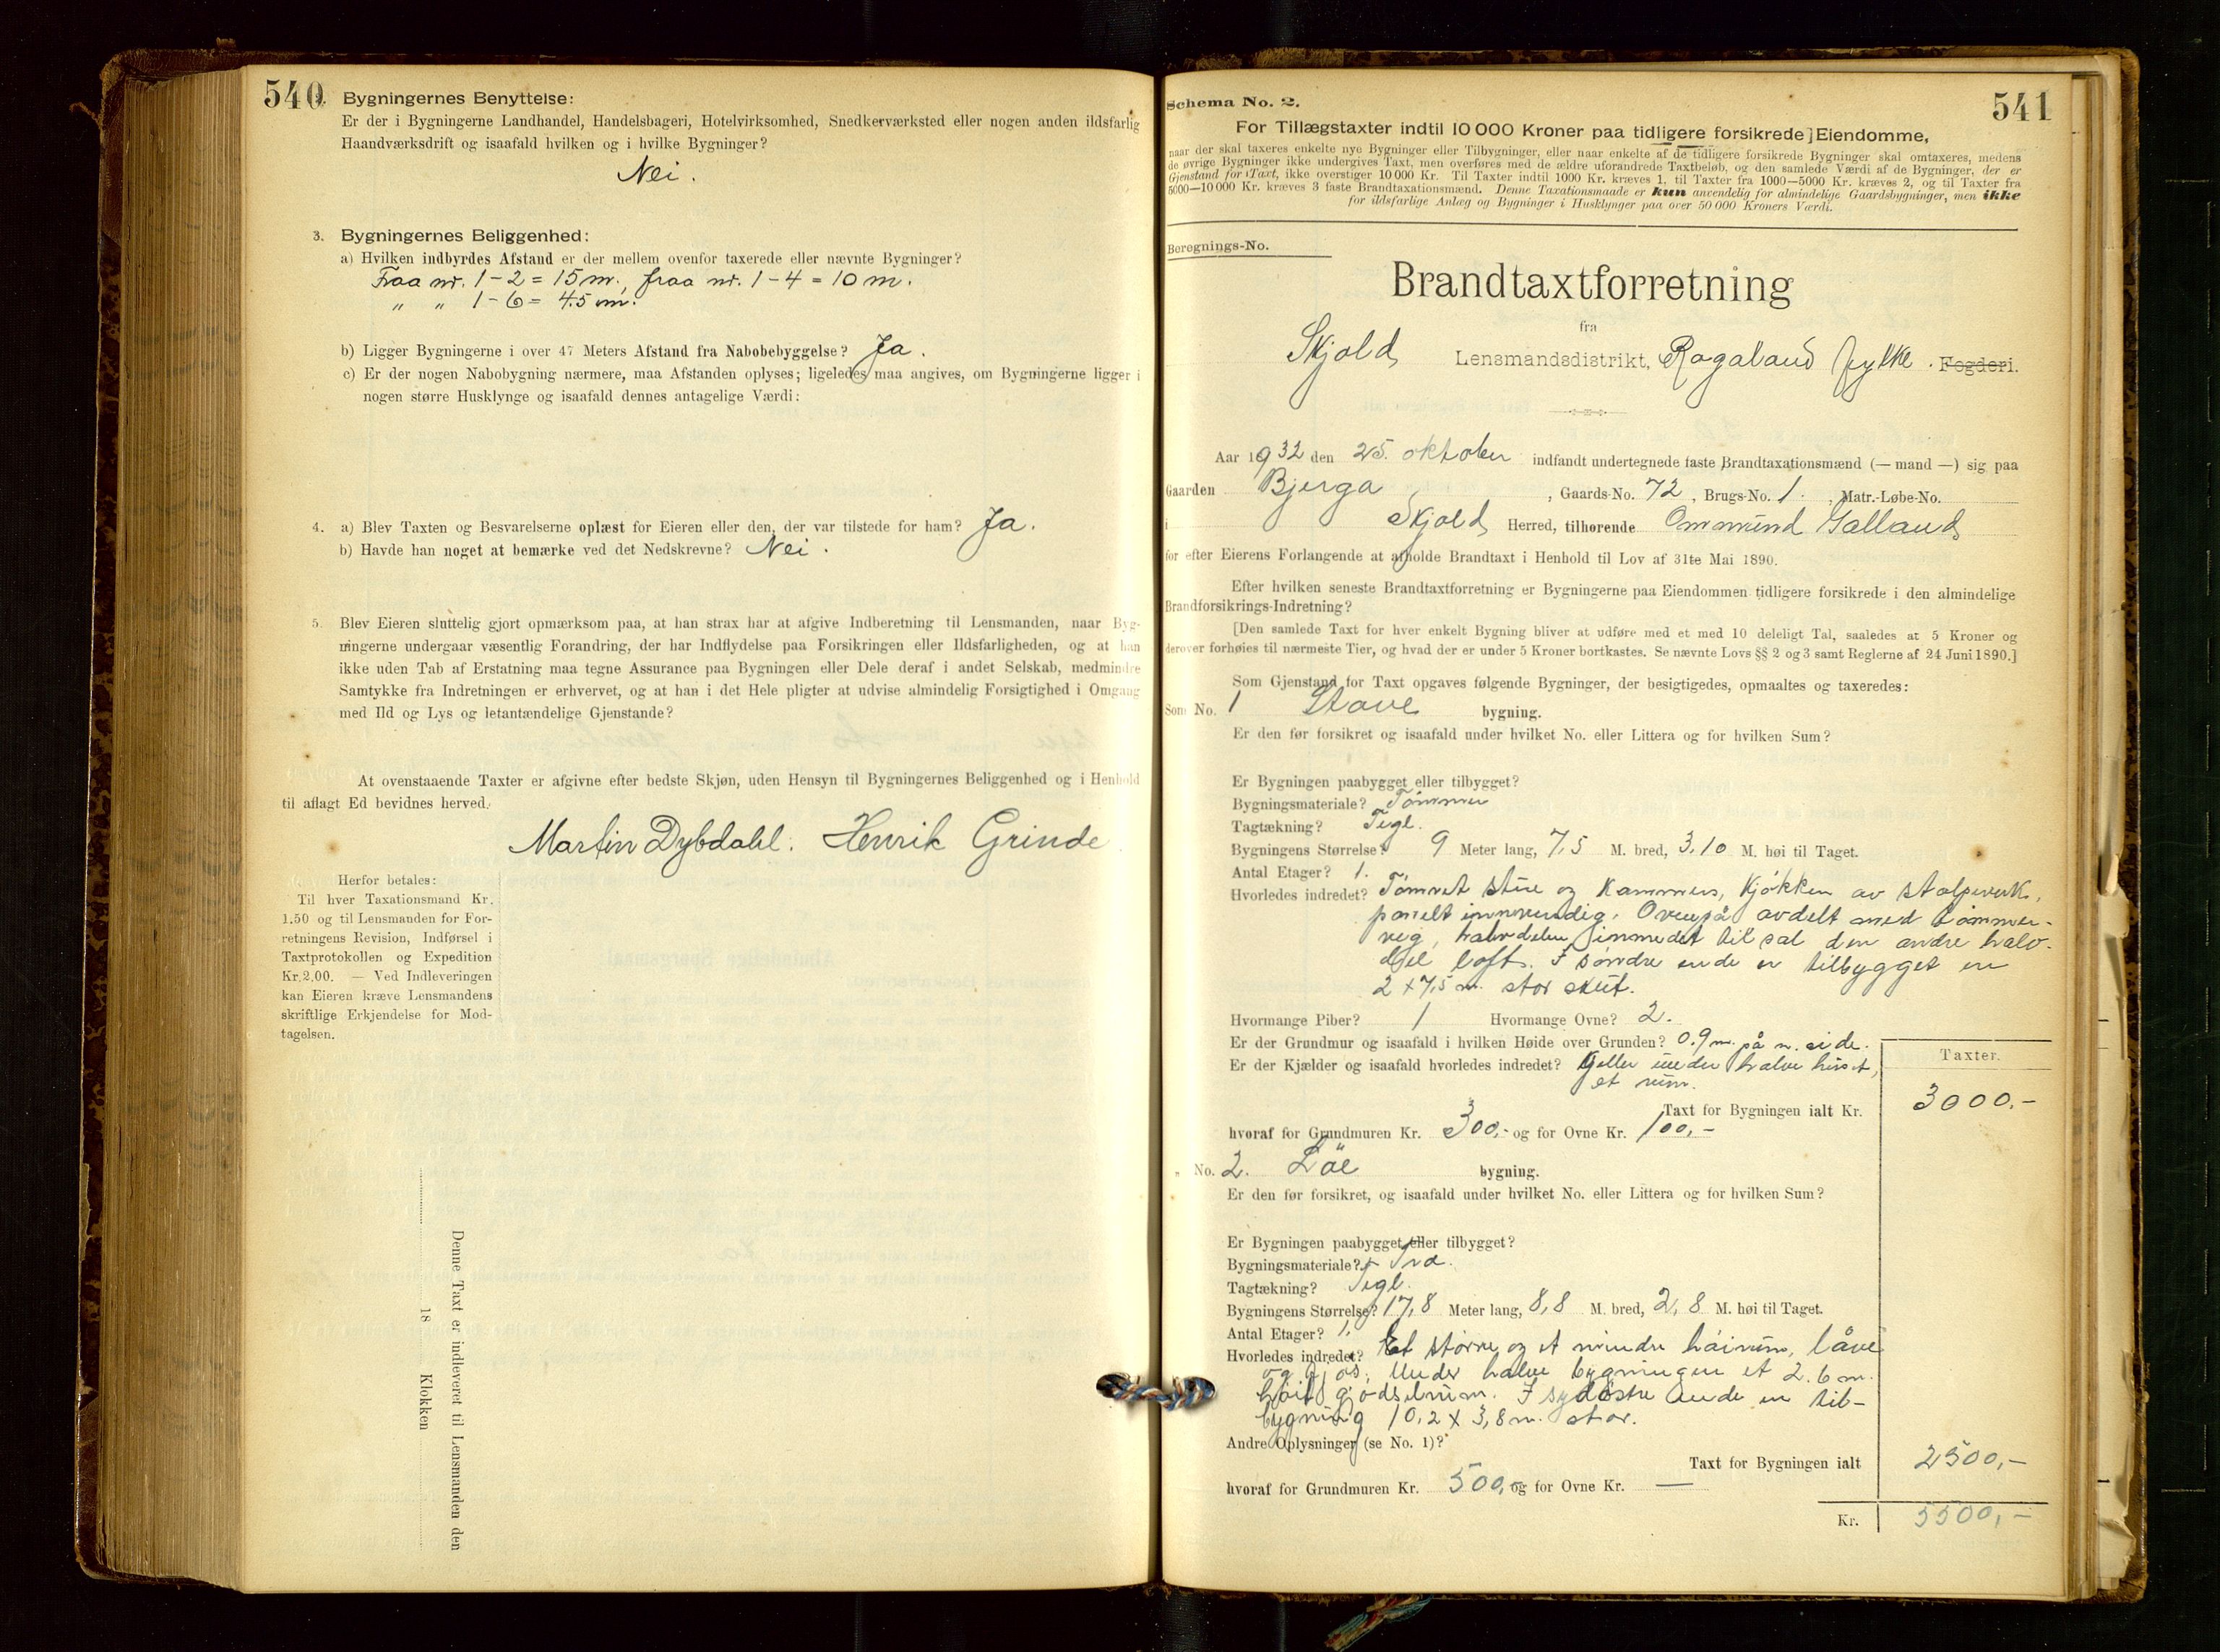 540
2. Bygningernes Benyttelse:
Er der i Bygningerne Landhandel, Handelsbageri, Hotelvirksomhed, Snedkerværksted eller nogen anden ildsfarlig
Haandværksdrift og isaafald hvilken og i hvilke Bygninger?
Nei.
3. Bygningernes Beliggenhed:
a) Hvilken indbyrdes Afstand er der mellem ovenfor taxerede eller nævnte Bygninger?
Fraa nr. 1-2 = 15 m., fraa nr. 1-4 = 10 m.
" " 1-6 = 4.5 m.
b) Ligger Bygningerne i over 47 Meters Afstand fra Nabobebyggelse? Ja.
c) Er der nogen Nabobygning nærmere, maa Afstanden oplyses; ligeledes maa angives, om Bygningerne ligger i
nogen større Husklynge og isaafald dennes antagelige Værdi:
4. a) Blev Taxten og Besvarelserne oplæst for Eieren eller den, der var tilstede for ham? Ja.
b) Havde han noget at bemærke ved det Nedskrevne? Nei.
5. Blev Eieren sluttelig gjort opmærksom paa, at han strax har at afgive Indberetning til Lensmanden, naar Byg-
ningerne undergaar væsentlig Forandring, der har Indflydelse paa Forsikringen eller Ildsfarligheden, og at han
ikke uden Tab af Erstatning maa tegne Assurance paa Bygningen eller Dele deraf i andet Selskab, medmindre
Samtykke fra Indretningen er erhvervet, og at han i det Hele pligter at udvise almindelig Forsigtighed i Omgang
med Ild og Lys og letantændelige Gjenstande?
At ovenstaaende Taxter er afgivne efter bedste Skjøn, uden Hensyn til Bygningernes Beliggenhed og i Henhold
til aflagt Ed bevidnes herved.
Martin Dybdahl. Henrik Grinde
Herfor betales:
Til hver Taxationsmand Kr.
1.50 og til Lensmanden for For-
retningens Revision, Indførsel i
Taxtprotokollen og Expedition
Kr. 2.00. — Ved Indleveringen
kan Eieren kræve Lensmandens
skriftlige Erkjendelse for Mod-
tagelsen.
Denne Taxt er indleveret til Lensmanden den
18 Klokken
541
Schema No. 2.
For Tillægstaxter indtil 10 000 Kroner paa tidligere forsikrede Eiendomme,
naar der skal taxeres enkelte nye Bygninger eller Tilbygninger, eller naar enkelte af de tidligere forsikrede Bygninger skal omtaxeres, medens
de øvrige Bygninger ikke undergives Taxt, men overføres med de ældre uforandrede Taxtbeløb, og den samlede Værdi af de Bygninger, der er
Gjenstand for Taxt, ikke overstiger 10 000 Kr. Til Taxter indtil 1000 Kr. kræves 1, til Taxter fra 1000—5000 Kr. kræves 2, og til Taxter fra
5000—10 000 Kr. kræves 3 faste Brandtaxationsmænd. Denne Taxationsmaade er kun anvendelig for almindelige Gaardsbygninger, men ikke
for ildsfarlige Anlæg og Bygninger i Husklynger paa over 50 000 Kroners Værdi.
Beregnings-No.
Brandtaxtforretning
fra
Skjold Lensmandsdistrikt, Rogaland fylke. Fogderi.
Aar 1932 den 25. oktober indfandt undertegnede faste Brandtaxationsmænd (— mand —) sig paa
Gaarden Bjerga, Gaards-No. 72, Brugs-No. 1., Matr.-Løbe-No.
i Skjold Herred, tilhørende Ommund Galland
for efter Eierens Forlangende at afholde Brandtaxt i Henhold til Lov af 31te Mai 1890.
Efter hvilken seneste Brandtaxtforretning er Bygningerne paa Eiendommen tidligere forsikrede i den almindelige
Brandforsikrings-Indretning?
[Den samlede Taxt for hver enkelt Bygning bliver at udføre med et med 10 deleligt Tal, saaledes at 5 Kroner og
derover forhøies til nærmeste Tier, og hvad der er under 5 Kroner bortkastes. Se nævnte Lovs §§ 2 og 3 samt Reglerne af 24 Juni 1890.]
Som Gjenstand for Taxt opgaves følgende Bygninger, der besigtigedes, opmaaltes og taxeredes:
Som No. 1 Stove bygning.
Er den før forsikret og isaafald under hvilket No. eller Littera og for hvilken Sum?
Er Bygningen paabygget eller tilbygget?
Bygningsmateriale? Tømmer
Tagtækning? Tegl.
Bygningens Størrelse? 9 Meter lang, 7,5 M. bred, 3,10 M. høi til Taget.
Antal Etager? 1.
Hvorledes indredet? Tømret stue og kammers, kjøkken av stolpeverk,
panelt innvendig. Ovenpå avdelt med tømmer-
veg, halvdelen innredet til sal den andre halv-
del loft. I søndre ende er tilbygget en
2 x 7,5 m. stor skut.
Hvormange Piber? 1 Hvormange Ovne? 2.
Er der Grundmur og isaafald i hvilken Høide over Grunden? 0.9 m. på n. side.
Er der Kjælder og isaafald hvorledes indredet? Kjeller under halve huset,
et rum.
Taxter.
Taxt for Bygningen ialt Kr. 3000.-
hvoraf for Grundmuren Kr. 300,- og for Ovne Kr. 100,-
" No. 2. Löe bygning.
Er den før forsikret, og isaafald under hvilket No. eller Littera og for hvilken Sum?
Er Bygningen paabygget eller tilbygget?
Bygningsmateriale? Tre.
Tagtækning? Tegl.
Bygningens Størrelse? 17,8 Meter lang, 8,8 M. bred, 2,8 M. høi til Taget.
Antal Etager? 1.
Hvorledes indredet? Et større og et mindre høirum, låve
og fjøs. Under halve bygningen et 2.6 m.
høit gjødselrum. I sydøstre ende en til-
bygning 10,2 x 3,8 m. stor.
Andre Oplysninger (se No. 1)?
Taxt for Bygningen ialt 2500,-
hvoraf for Grundmuren Kr. 500, og for Ovne Kr. —
Kr. 5500,-